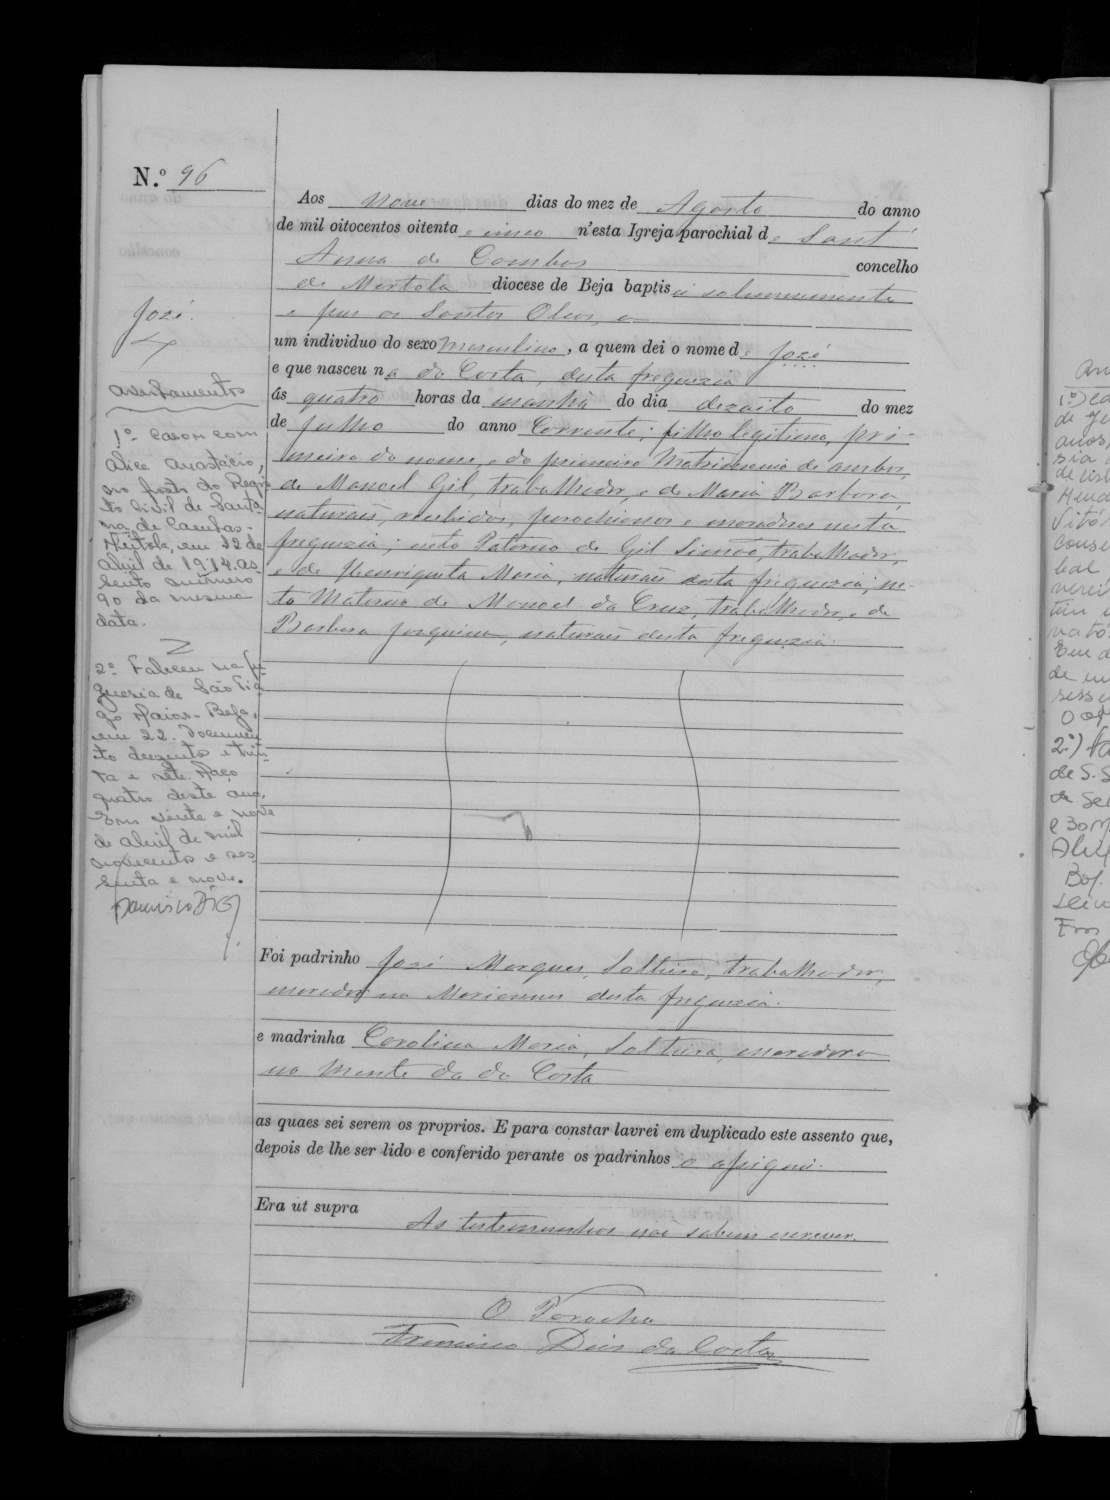 N.º 96
José.
Aos nove dias do mez de Agosto do anno
de mil oitocentos oitenta e cinco n'esta Igreja parochial de Sant'
Anna de Cambas concelho
de Mertola diocese de Beja baptisei solemnemente
e puz os Santos Oleos, a
um individuo do sexo masculino, a quem dei o nome de José
e que nasceu na da Corta, desta freguezia
ás quatro horas da manhã do dia dezoito do mez
de Julho do anno Corrente; filho legitimo, pri-
meiro do nome, e do primeiro Matrimonio de ambos,
de Manoel Gil, trabalhador, e de Maria Barbora,
naturais, recebidos, parochianos e moradores nesta
freguezia; neto Paterno de Gil Simão, trabalhador,
e de Henriqueta Maria, naturais desta freguezia; ne-
to Materno de Manoel da Cruz, trabalhador, e de
Barbora Joaquina, naturais desta freguezia.
Foi padrinho José Marques, Solteiro, trabalhador,
morador no desta freguezia.
e madrinha Carolina Maria, Solteira, moradora
no Monte da da Corta
as quaes sei serem os proprios. E para constar lavrei em duplicado este assento que,
depois de lhe ser lido e conferido perante os padrinhos o assignei.
Era ut supra
As testemunhas não sabem escrever.
O Parocho
Francisco Dias da Costa
Averbamentos
1º Casou com
Alice Anastácio,
no posto do Regis-
to Civil de Santa-
na de Cambas-
Mértola, em 12 de
Abril de 1914. As-
sento número
90 da mesma
data.
2º Faleceu na fre-
guesia de São Tia-
go Maior - Beja,
em 22. Documen-
to duzentos e trin-
ta e sete. Maço
quatro deste ano.
Em vinte e nove
de Abril de mil
novecentos e ses-
senta e nove.
2º)
de S. S